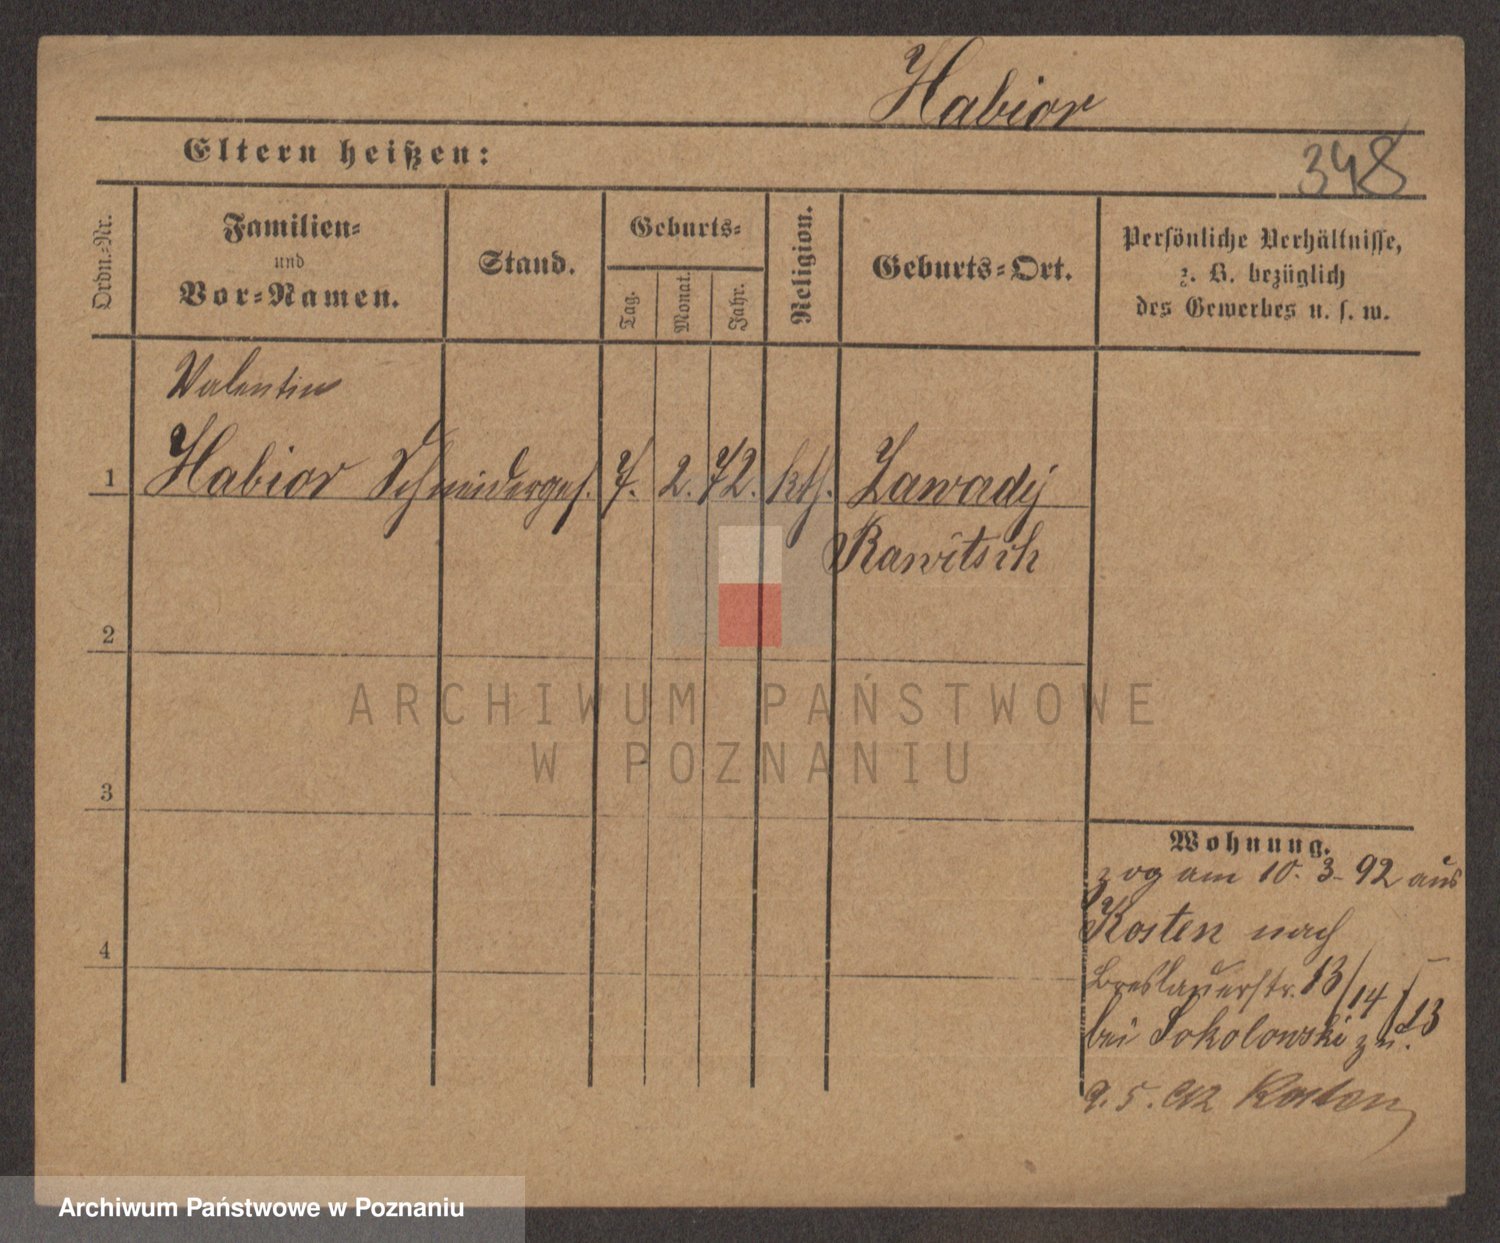 Habior
Eltern heißen:
348
Ordn.-Nr.
Familien-
und
Vor-Namen.
Stand.
Geburts-
Tag.
Monat.
Jahr.
Religion.
Geburts-Ort.
Persönliche Verhältnisse,
z. B. bezüglich
des Gewerbes u. s. w.
Valentin
1 Habior Schneiderges. 7. 2. 72. kth. Zawady
Rawitsch
2
ARCHIWUM PAŃSTWOWE
W POZNANIU
3
Wohnung.
zog am 10. 3. 92 aus
Kosten nach
4
Breslauerstr. 13/14
bei Sokolowski zu. 13
9. 5. 92 Kosten
Archiwum Państwowe w Poznaniu